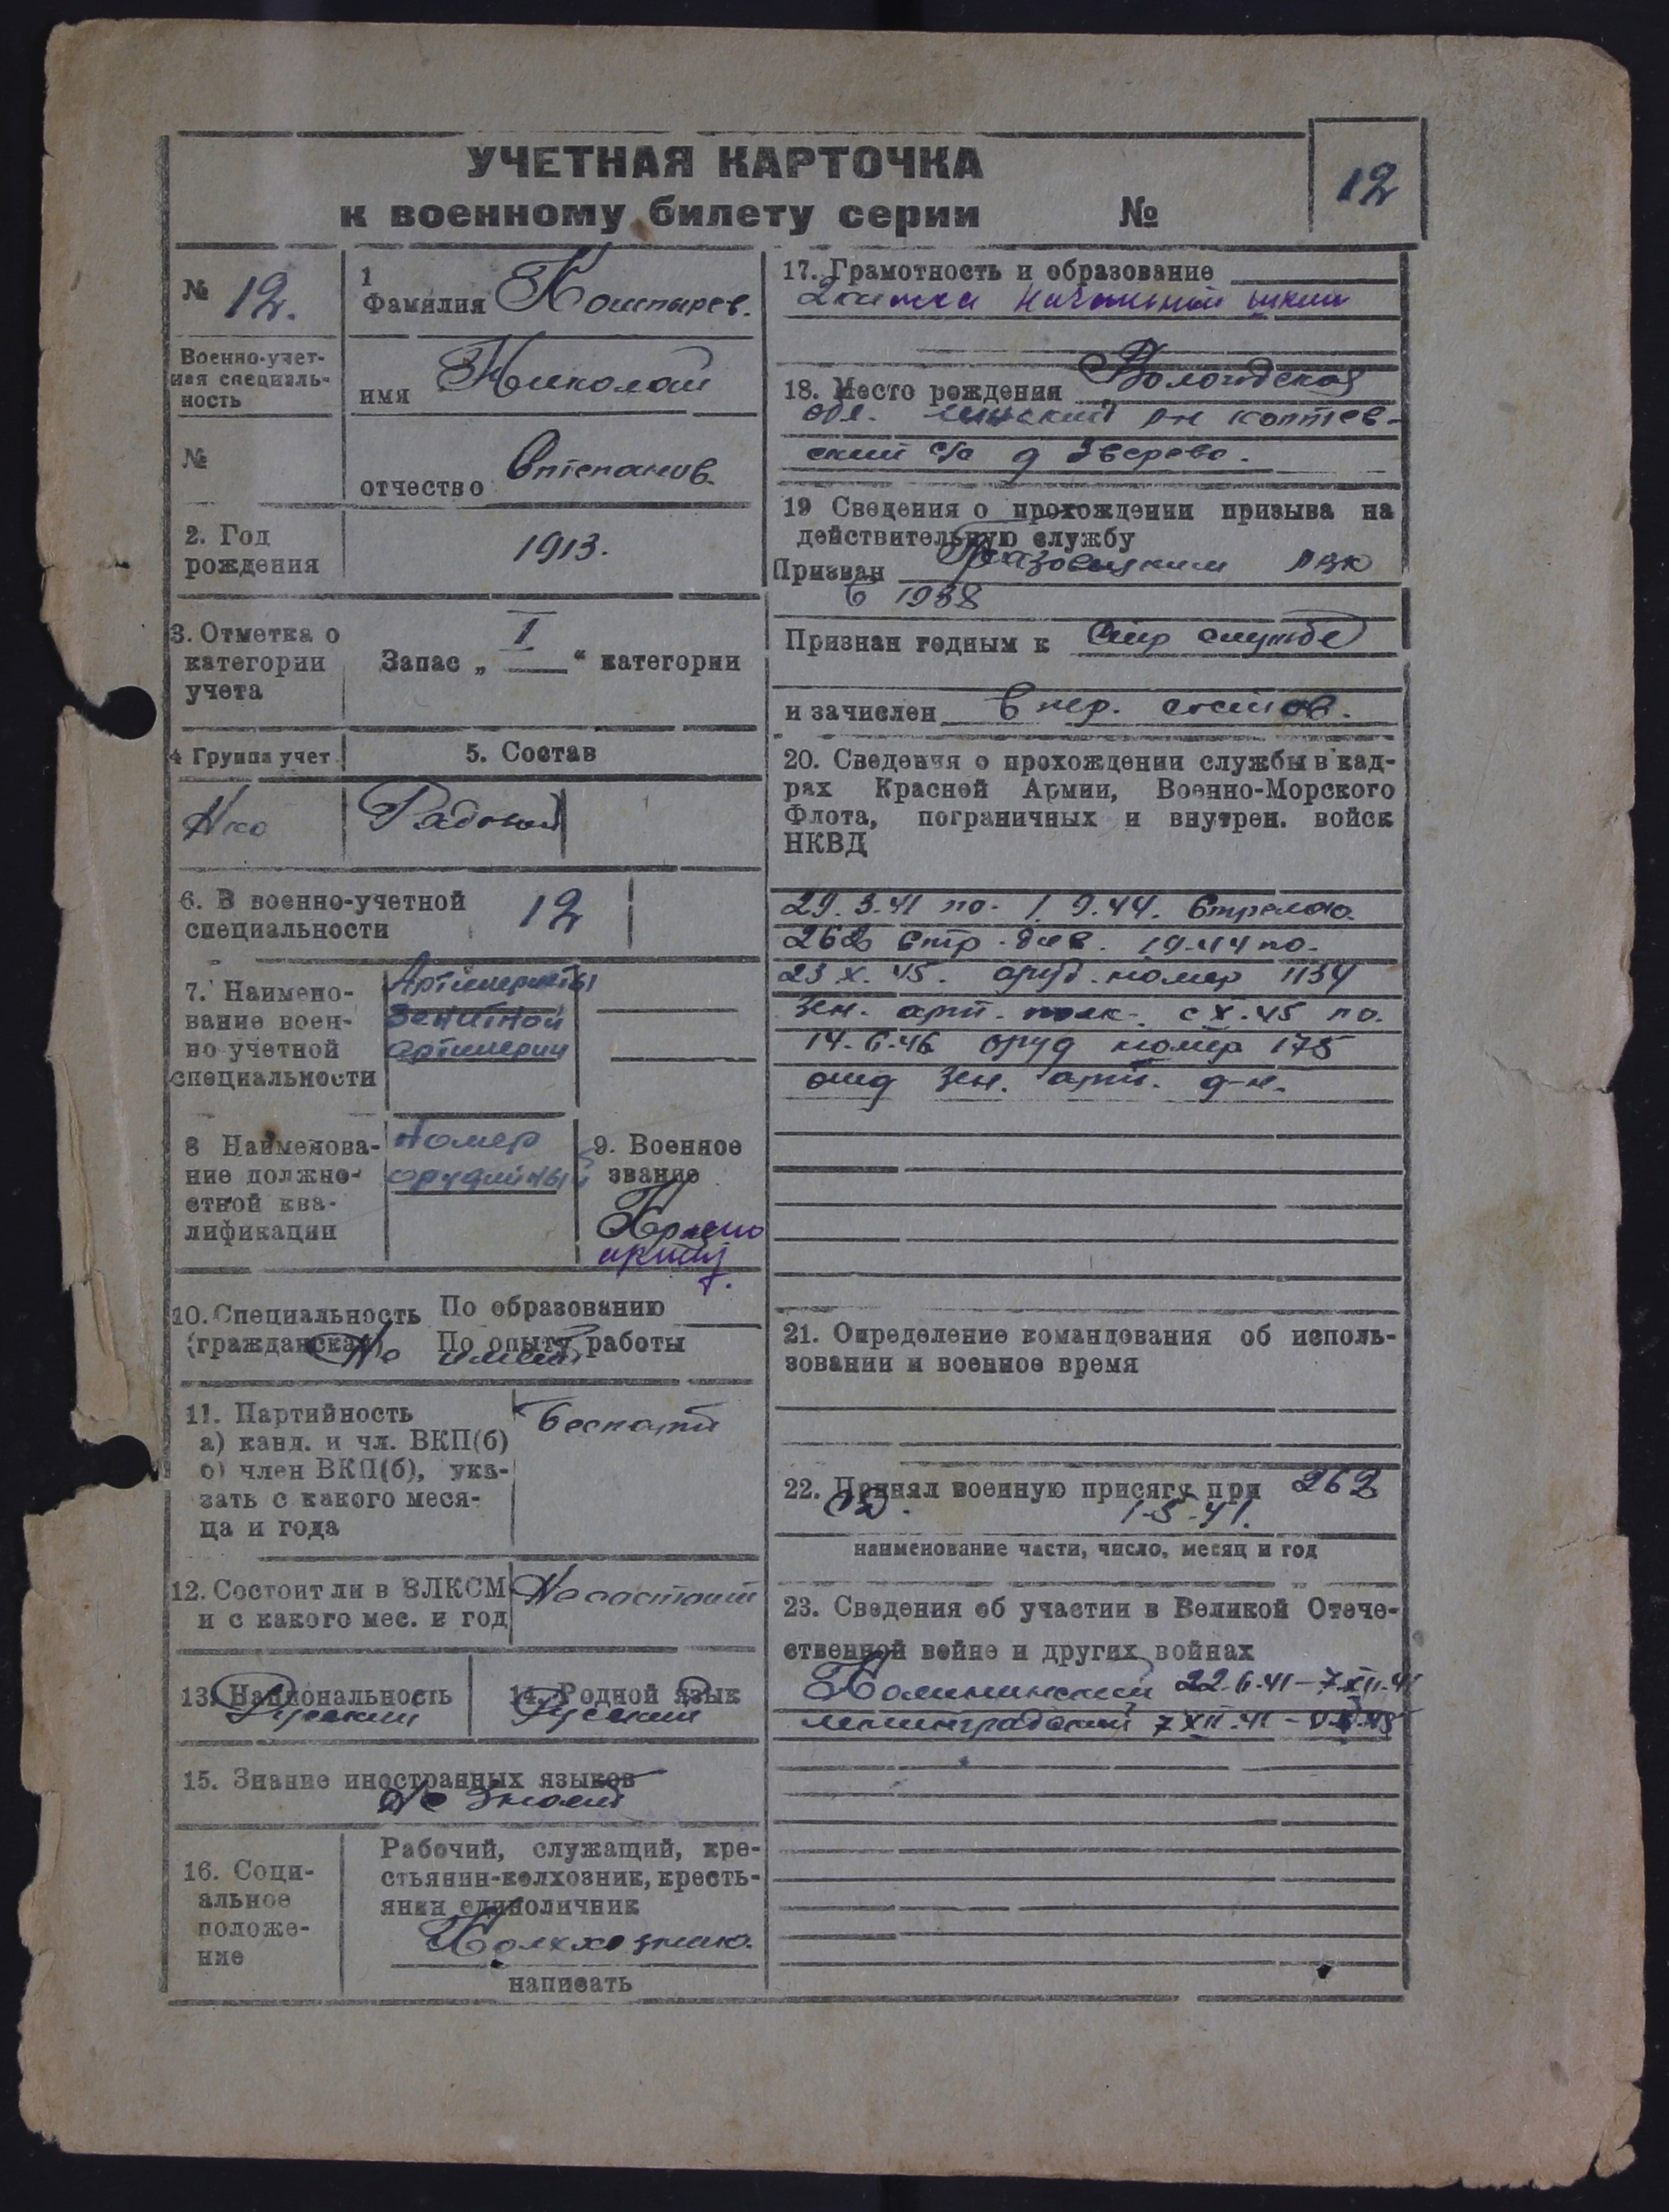 УЧЕТНАЯ КАРТОЧКА
к военному билету серии №
12
№ 12.
1
Фамилия Коштырев.
Военно-учет-
ная специаль-
ность
имя Николай
№
отчество Степанов.
2. Год
рождения
1913.
3. Отметка о
категории
учета
Запас „ I “ категории
4 Группа учет.
5. Состав
Нко
Рядовой
6. В военно-учетной
специальности
12
7. Наимено-
вание воен-
но учетной
специальности
Артиллеристы
зенитной
артиллерии
8 Наименова-
ние должно-
стной ква-
лификации
Номер
орудийный
9. Военное
звание
Красно
10. Специальность
(гражданская)
По образованию
По опыту работы
Не имеет
11. Партийность
а) канд. и чл. ВКП(б)
б) член ВКП(б), ука-
зать с какого меся-
ца и года
беспарт
12. Состоит ли в ВЛКСМ
и с какого мес. и год
Не состоит
13. Национальность
Русский
14. Родной язык
Русский
15. Знание иностранных языков
Не знает
16. Соци-
альное
положе-
ние
Рабочий, служащий, кре-
стьянин-колхозник, кресть-
янин единоличник
Колхозник.
написать
17. Грамотность и образование
2 класса начальной школы
18. Место рождения Вологодская
обл. р-н Коптев-
ский с/с д Зверево.
19 Сведения о прохождении призыва на
действительную службу
Призван Грязовецким РВК
в 1938
Признан годным к стр службе
и зачислен в пер. состав.
20. Сведения о прохождении службы в кад-
рах Красной Армии, Военно-Морского
Флота, пограничных и внутрен. войск
НКВД
29.3.41 по. 1.9.44. Стрелок
262 стр. див. 19.44 по.
23 X. 45. оруд. номер 1134
зен. арт. полк. с X.45 по.
14.6.46 оруд номер 175
отд зен. арт. д-н.
21. Определение командования об исполь-
зовании и военное время
22. Принял военную присягу при 262
СД. 1-5-41.
наименование части, число, месяц и год
23. Сведения об участии в Великой Отече-
ственной войне и других войнах
Калининский 22.6.41 – 7.XII.41
Ленинградский 7 XII.41 –